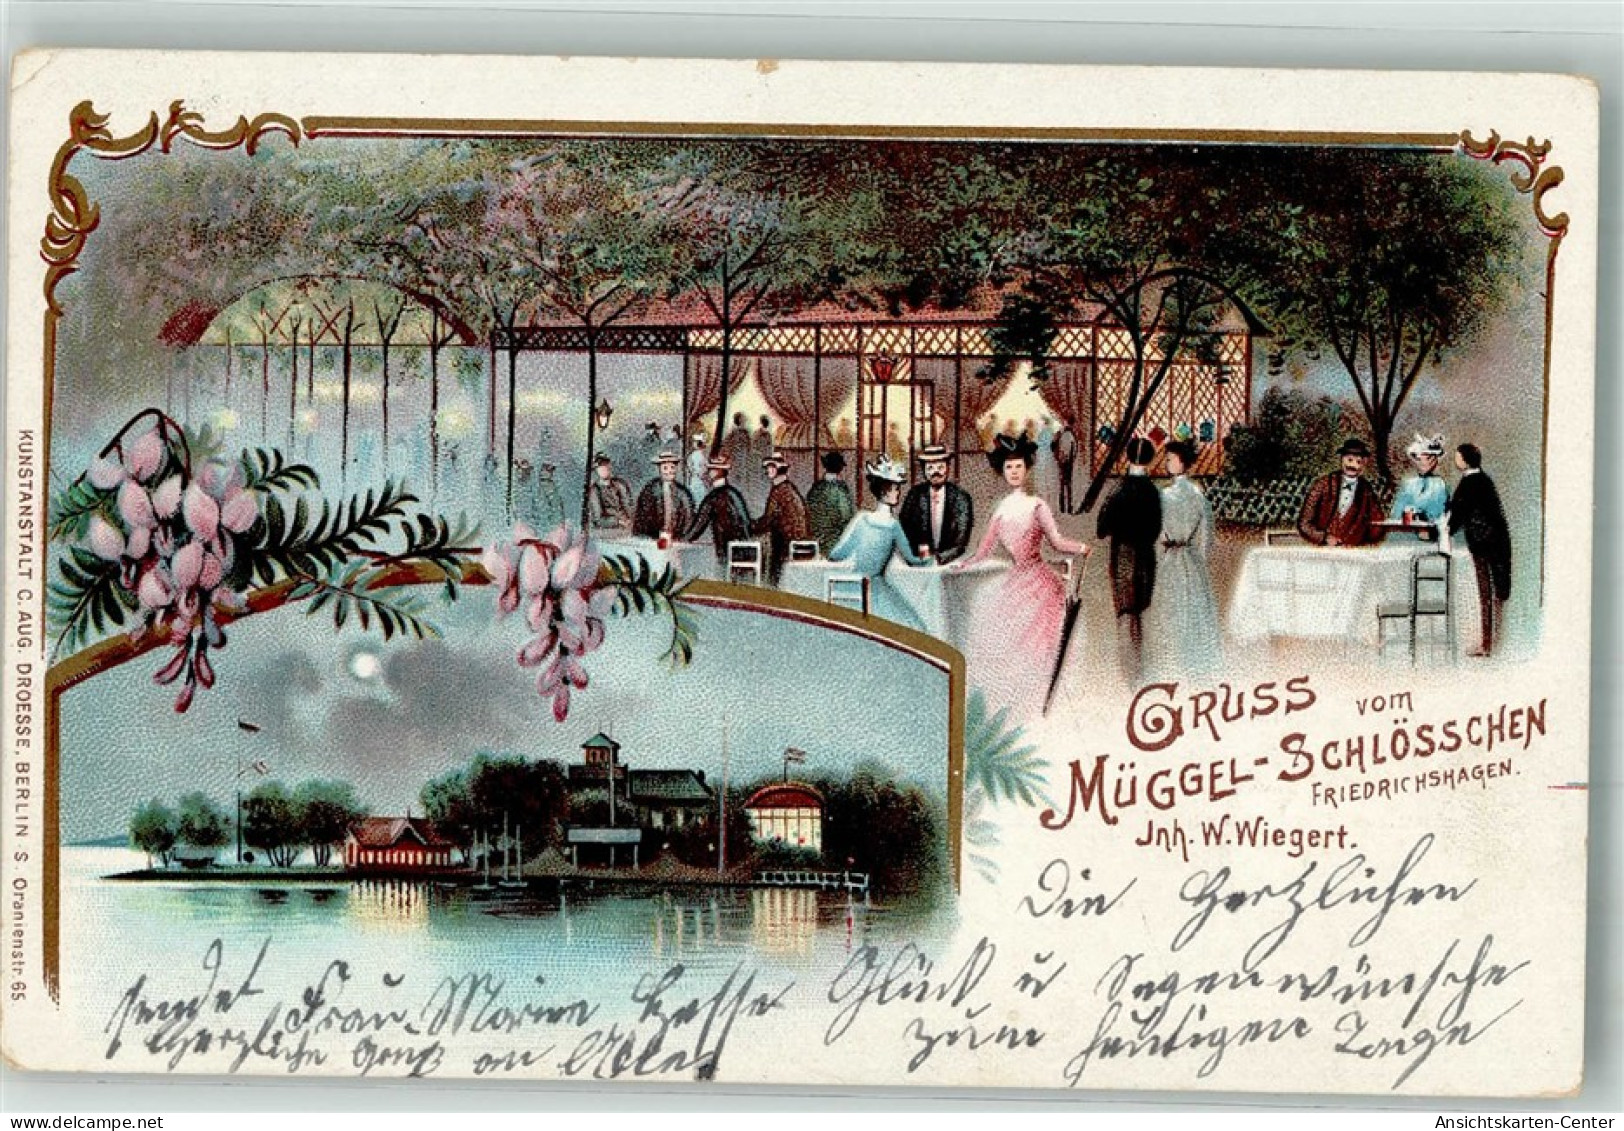 GRUSS vom
MÜGGEL-SCHLÖSSCHEN
FRIEDRICHSHAGEN.
Jnh. W. Wiegert.
Die Hertzlichen
Glück u Segenwünsche
zum heutigen Tage
sendet Frau Marine Hesse
Herzliche Gruß an Alle
KUNSTANSTALT C. AUG. DROESSE, BERLIN S Oranienstr. 65
AnsichtsKarten-Center